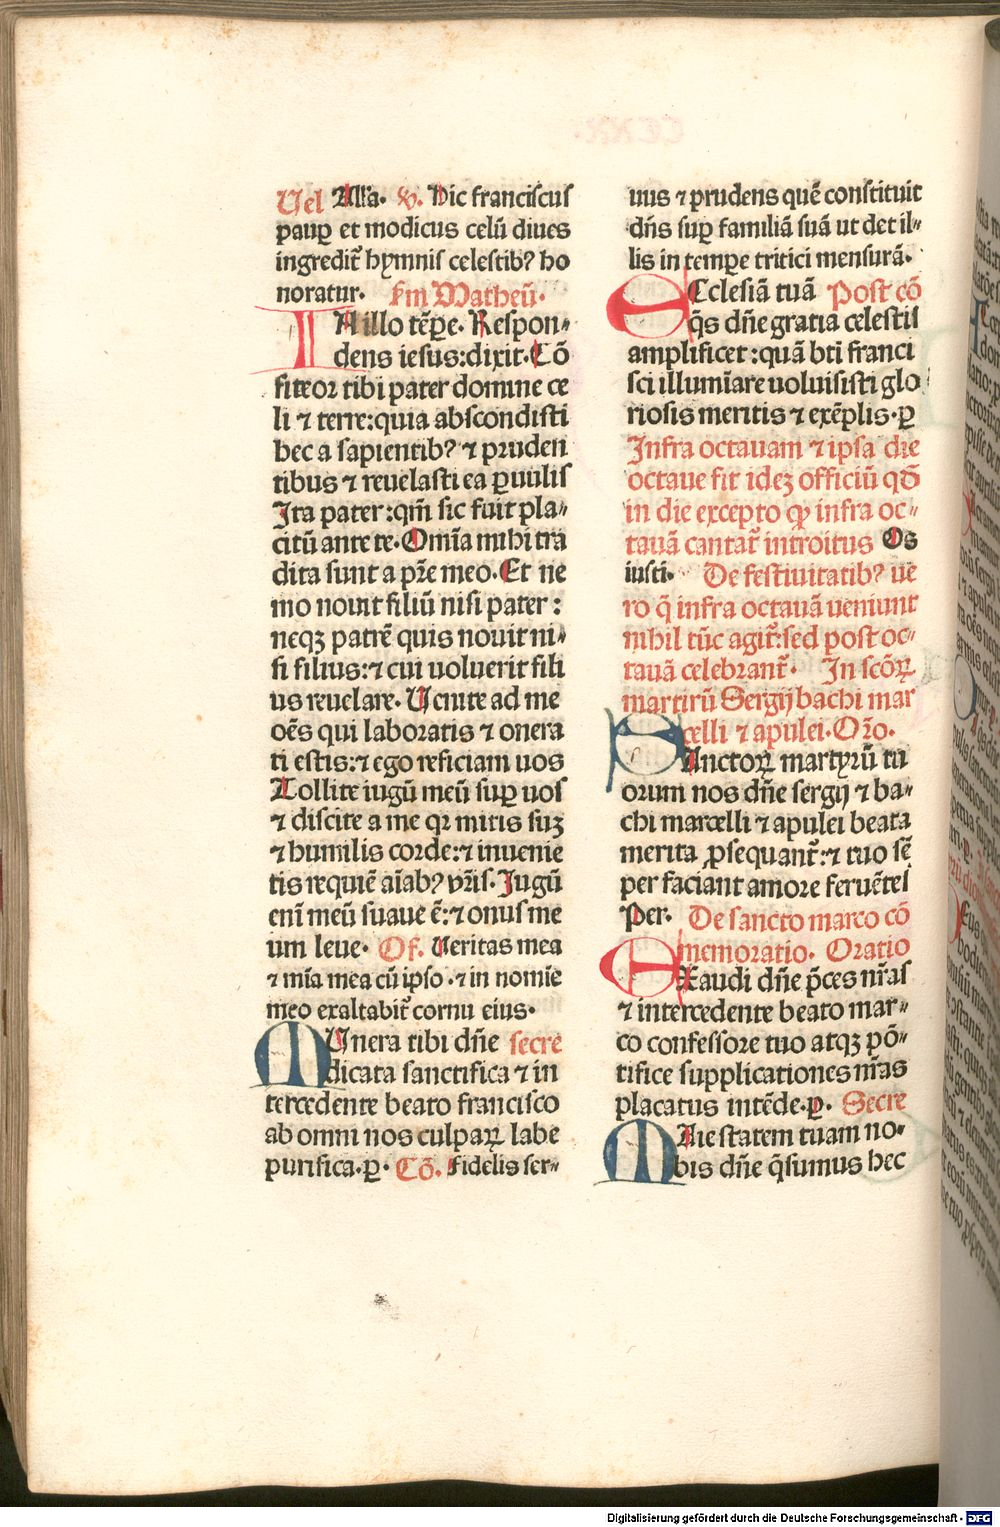 Uel Alla. v. Hic franciscus
paup et modicus celū diues
ingredit᷑ hymnis celestibꝰ ho
noratur. Fm Matheū.
IN illo tēpe. Respon⸗
dens iesus: dixit. Cō
fiteor tibi pater domine ce
li ⁊ terre: quia abscondisti
hec a sapientibꝰ ⁊ pruden
tibus ⁊ reuelasti ea ꝑuulis
Ita pater: qm̄ sic fuit pla⸗
citū ante te. Omīa mihi tra
dita sunt a pr̄e meo. Et ne
mo nouit filiū nisi pater:
neqꝫ patrē quis nouit ni⸗
si filius: ⁊ cui uoluerit fili
us reuelare. Uenite ad me
oēs qui laboratis ⁊ onera
ti estis: ⁊ ego reficiam uos
Tollite iugū meū suꝑ uos
⁊ discite a me qr mitis suꝫ
⁊ humilis corde: ⁊ inuenie
tis requiē aīabꝰ vr̄is. Iugū
enī meū suaue ē: ⁊ onus me
um leue. Of. Ueritas mea
⁊ mīa mea cū ipso. ⁊ in nomīe
meo exaltabit᷑ cornu eius.
MUnera tibi dn̄e secre
dicata sanctifica ⁊ in
tercedente beato francisco
ab omni nos culpaꝝ labe
purifica. ꝑ. Cō. Fidelis ser⸗
uus ⁊ prudens quē constituit
dn̄s suꝑ familiā suā ut det il⸗
lis in tempe tritici mensurā.
ECclesiā tuā Post cō
q̄s dn̄e gratia celestis
amplificet: quā bt̄i franci
sci illumīare uoluisti glo
riosis meritis ⁊ exēplis. ꝑ
Infra octauam ⁊ ipsa die
octaue fit ideꝫ officiū qđ
in die excepto ꝙ infra oc⸗
tauā cantat᷑ introitus Os
iusti. De festiuitatibꝰ ue
ro q̄ infra octauā ueniunt
nihil tūc agit᷑: sed post oc⸗
tauā celebrant᷑. In scōꝝ
martirū Sergij bachi mar
celli ⁊ apulei. Orō.
SAnctoꝝ martyrū tu
orum nos dn̄e sergij ⁊ ba⸗
chi marcelli ⁊ apulei beata
merita ꝓsequant᷑: ⁊ tuo sē
per faciant amore feruētes
Per. De sancto marco cō
memoratio. Oratio
EXaudi dn̄e p̄ces nr̄as
⁊ intercedente beato mar⸗
co confessore tuo atqꝫ pō⸗
tifice supplicationes nr̄as
placatus intēde. ꝑ. Secre
MAiestatem tuam no⸗
bis dn̄e q̄sumus hec
Digitalisierung gefördert durch die Deutsche Forschungsgemeinschaft - DFG